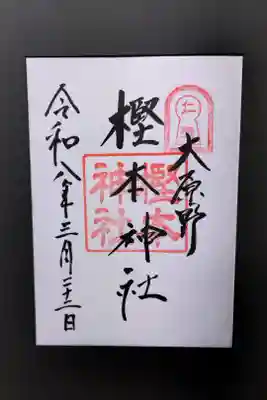 大原野
樫本神社
令和八年三月二十二日
仁
樫本
神社